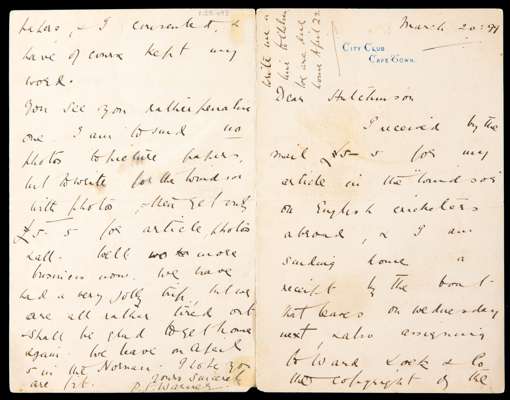 March 20: 99
CITY CLUB
CAPE TOWN.
Dear Hutchinson
I received by the
mail £5-5 for my
article in the "Windsor"
on English cricketers
abroad, & I am
sending home a
receipt by the boat
that leaves on Wednesday
next, also assigning
to Ward Lock & Co
the copyright of the
papers, & I consented, &
have of course kept my
word.
You see you rather penalise
me. I am to send no
photos to picture papers,
but to write for the Windsor
with photos, & then get only
£5-5 for article, photos
& all. Well no more
business now. We have
had a very jolly trip, but we
are all rather tired out
& shall be glad to get home
again. We leave on April
5 in the Norman. I hope you
are fit. Yours sincerely
P. F. Warner.
write me a
line to
we are due
home April 22